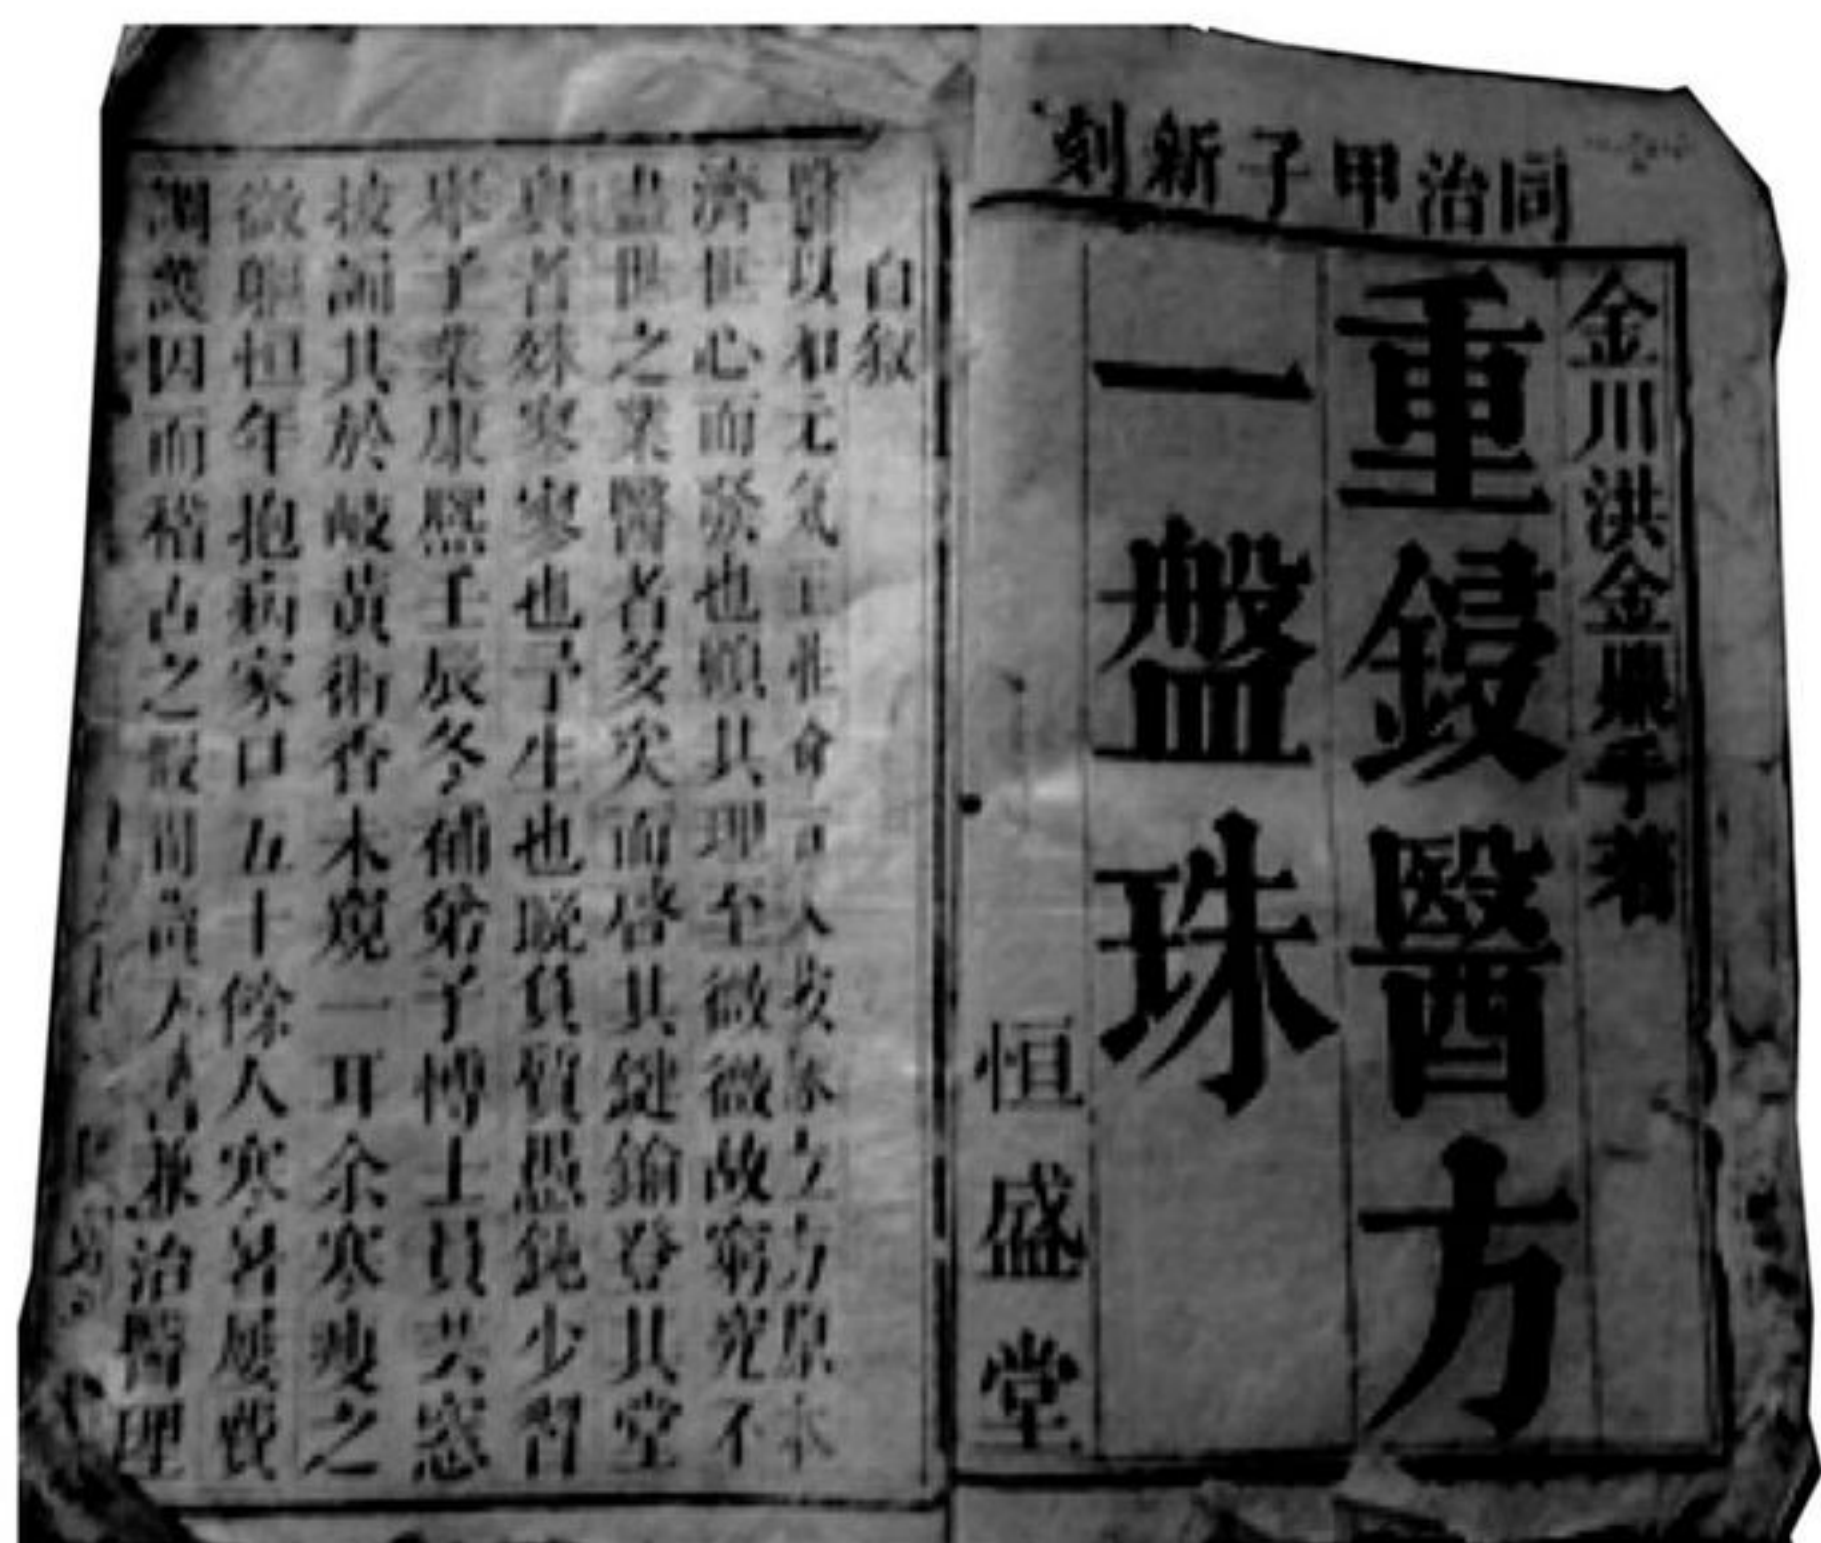 同治甲子新刻
金川洪金鼎手著
重鋟醫方
一盤珠
恒盛堂
自叙
醫以和元氣
濟世心而發也顧其理至微微故窮究不
盡世之業醫者多矣而啓其鍵鑰登其堂
奧者殊寥寥也予生也既負質愚鈍少習
舉子業康熙壬辰冬補弟子博士員芸窓
披誦其於岐黃術香木窺一耳余寒瘦之
微軀恒年抱病家口五十餘人寒暑屢費
調護因而稽古之暇兼治醫理